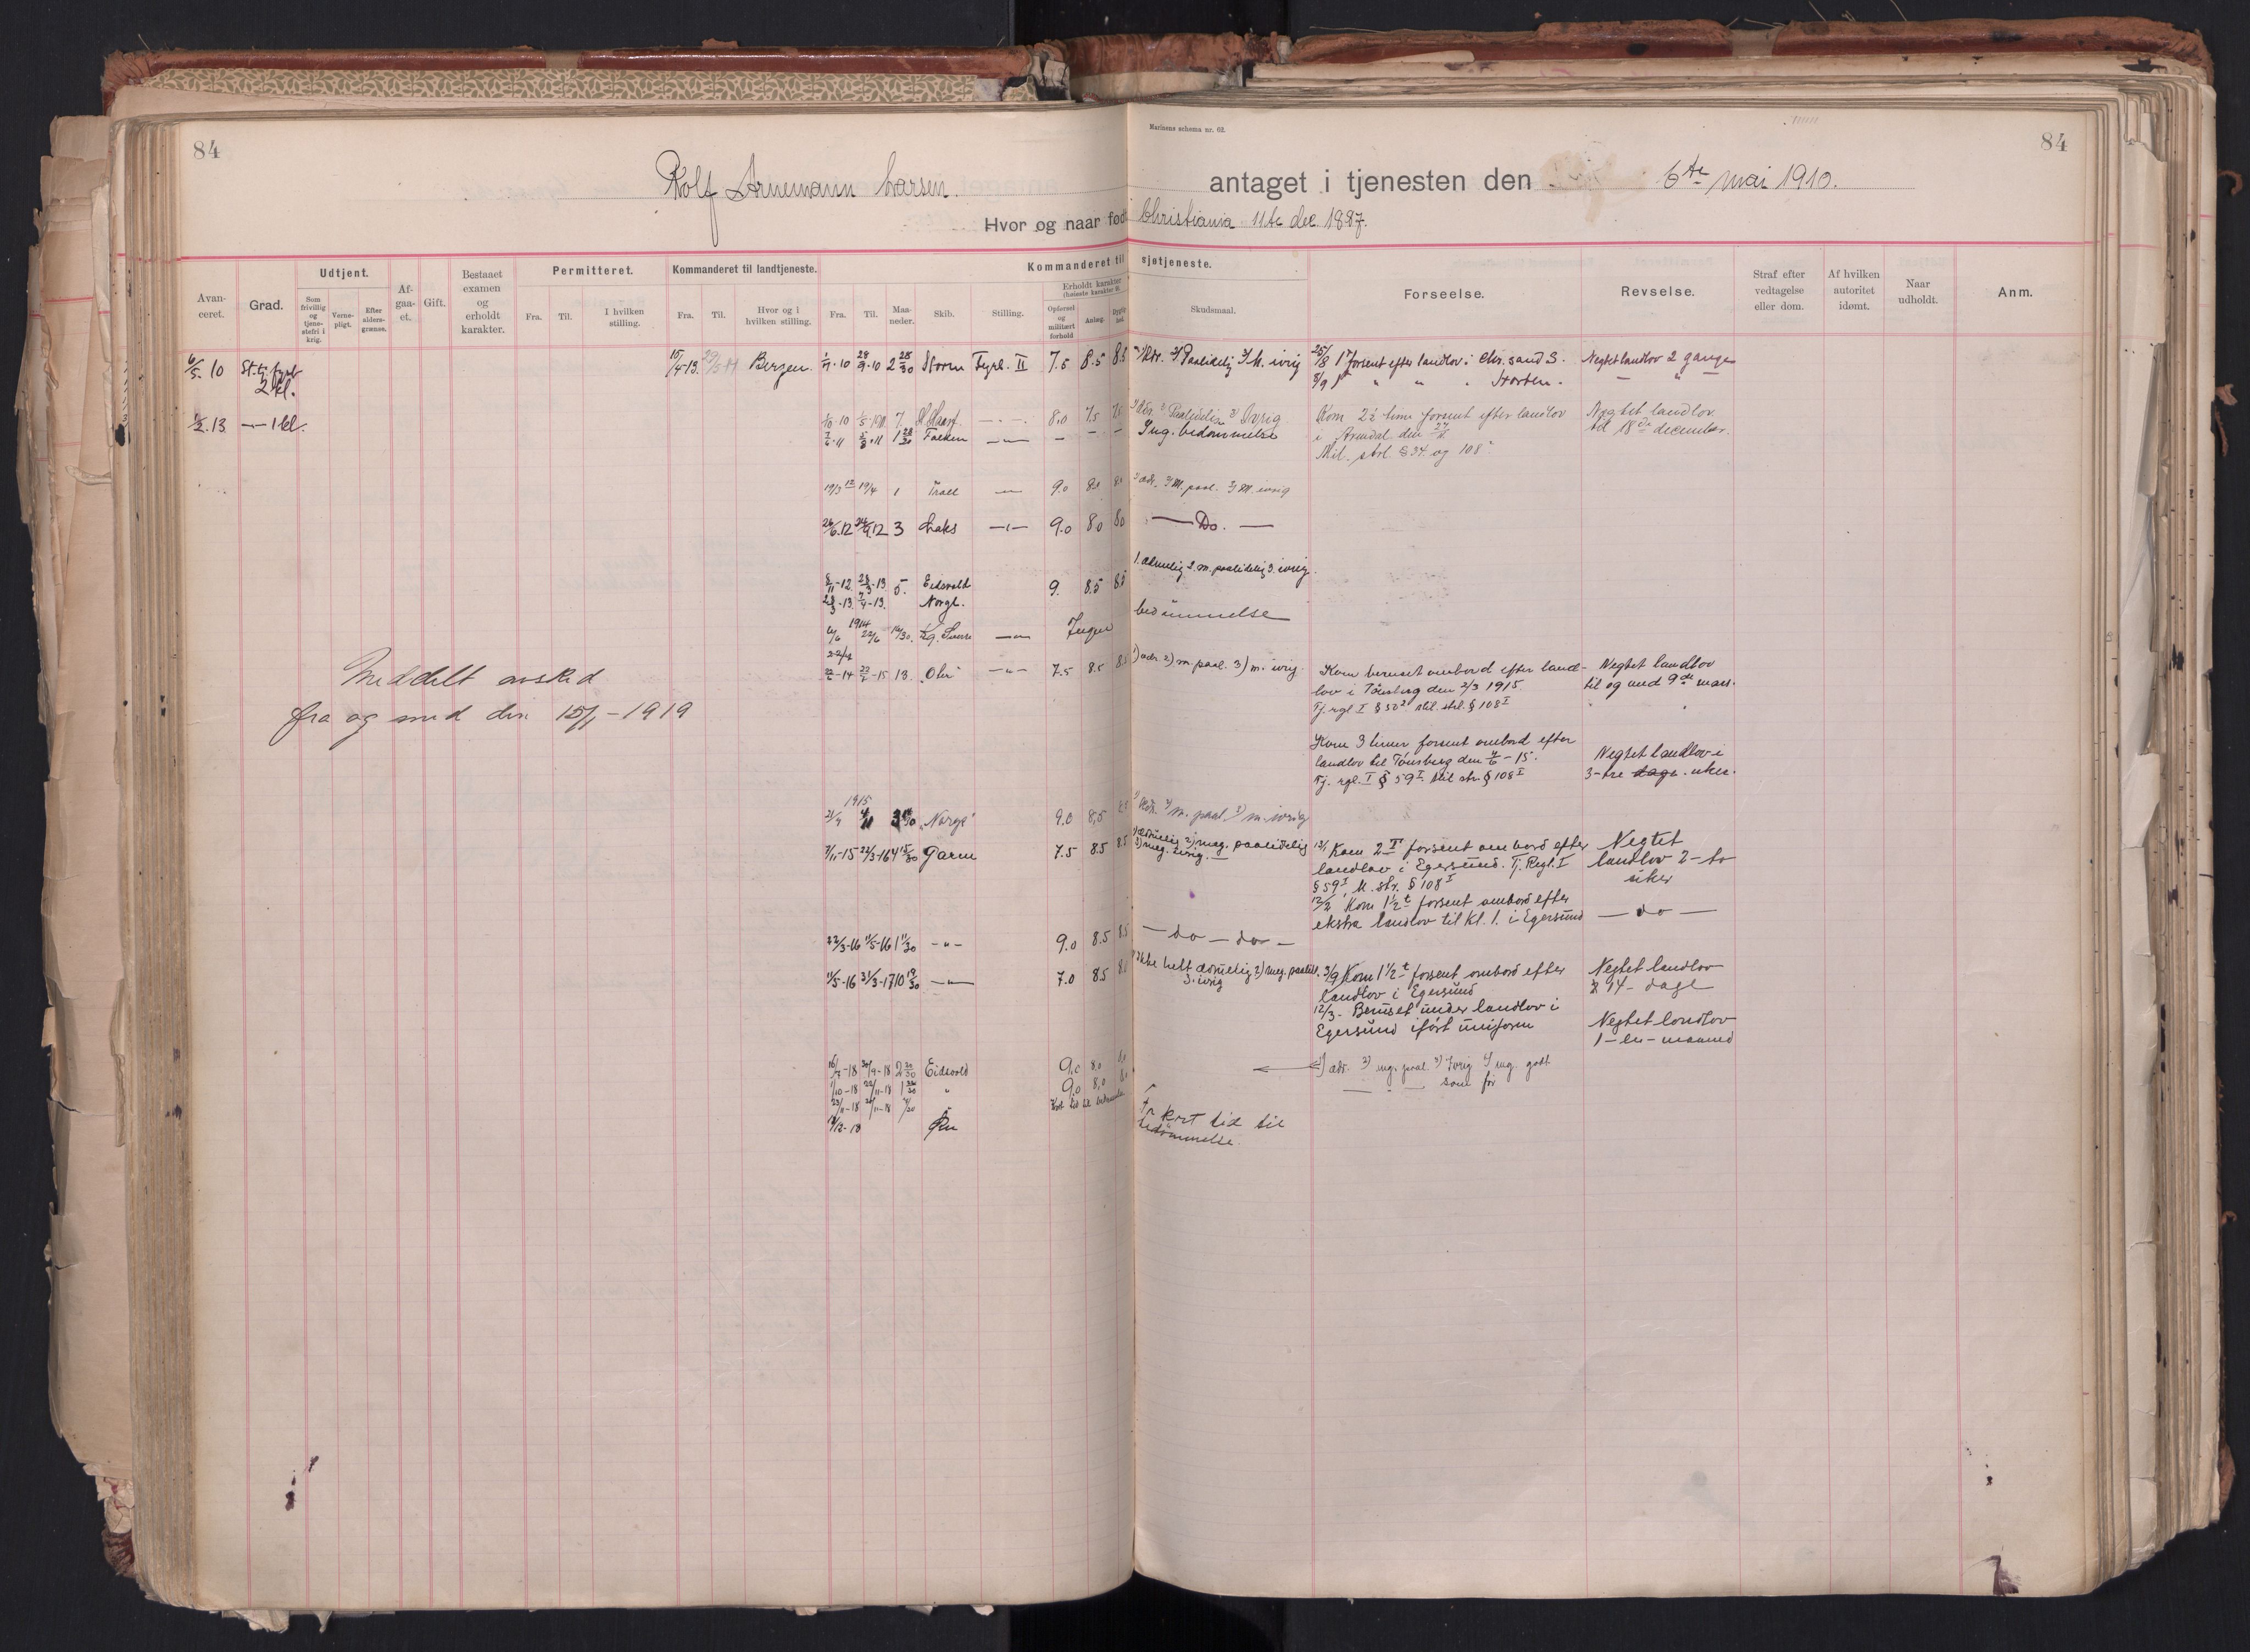 84
Marinens schema nr. 62.
84
Rolf Arnemann Larsen.
antaget i tjenesten den 6te mai 1910.
Hvor og naar født Christiania 11te dec. 1887.
Avanceret.
Grad.
Udtjent.
Som frivillig og tjenestefri i krig.
Vernepligt.
Efter aldersgrænse.
Afgaaet.
Gift.
Bestaaet examen og erholdt karakter.
Permitteret.
Fra.
Til.
I hvilken stilling.
Kommanderet til landtjeneste.
Fra.
Til.
Hvor og i hvilken stilling.
Kommanderet til sjøtjeneste.
Fra.
Til.
Maaneder.
Skib.
Stilling.
Erholdt karakter
Opførsel og militært forhold
Anlæg.
Skudsmaal.
Forseelse.
Revselse.
Straf efter vedtagelse eller dom.
Af hvilken autoritet idømt.
Naar udholdt.
Anm.
6/5. 10 2 kl. 15/4-13. Bergen. 1/7.10 28/9.10 2 28/30 Storm Fyrb. II 7.5 8.5 8.5 Paalidelig 3) M. ivrig
25/8 1t forsent efter landlov i Chr.sand S. Negtet landlov 2 gange
8/9 1t " " . Horten. — " —
1/2.13 —"— 1 kl. 1/10.10 7 8.0 7.5 7.5 Paalidelig 3) Ivrig
Falken —"— – – – Ing. bedømmelse
Kom 2½ time forsent efter landlov
i Arendal den
Mil. strl. § 34 og 108
Negtet landlov
til 18de december.
19/3 12 19/4 1 Trold —"— 9.0 8.0 8.0 2) M. paal. 3) M. ivrig
26/6.12 3 Laks —"— 9.0 8.0 8.0 — Do. —
8/11-12 28/3-13 5. Eidsvold 9. 8.5 8.5 1. ædruelig 2. m. paalidelig 3. ivrig.
28/3-13. 7/4-13. Norge.
1914
6/6 22/6 Kg. Sverre —"— Ingen bedømmelse
14 15 13. „Otir" —"— 7.5 8.5 8.5 1) ædr 2) m. paal. 3) m. ivrig.
Kom beruset ombord efter land-
lov i Tönsberg den 2/3 1915
Tj. rgl I § 50² Mil. strl. § 108 I
Negtet landlov
til og med 9de mars.
Meddelt avsked
fra og med den 15/1 - 1919
Kom 3 timer forsent ombord efter
landlov til Tönsberg den 4/6 - 15.
Tj. rgl. I § 59 I Mil str. § 108 I
Negtet landlov i
3-tre dage. uker.
1915
„Norge" 9.0 8,5 8.5 2) m. paal. 3) m. ivrig
7/11-15 22/3-16 4 15/30 Garm 7.5 8.5 8.5 1) ædruelig 2) meg. paalidelig
3) meg. ivrig. —
12/1 Kom 2 T forsent om bord efter
landlov i Egersund. Tj. Regl. I
§ 59 I, M. str. § 108 I
Negtet
landlov 2 - to
uker
12/2 Kom 1½ t forsent ombord efter
ekstra landlov til kl. 1. i Egersund — do —
22/3-16 11/5-16 1 11/30 —"— 9.0 8.5 8.5 — do — do —
11/5-16 31/3-17 10 19/30 —"— 7.0 8.5 8.0 1) Ikke helt ædruelig 2) meg. paalid.
3. ivrig
3/9 Kom 1½ t forsent ombord efter
Landlov i Egersund
Negtet landlov
14 - dage
12/3 - Beruset under landlov i
Egersund iført uniform
Negtet landlov
1 - en - maaned
16/7-18 30/9-18 2 Eidsvold 9,0 8.0 8.0 1) ædr. 2) mg. paal. 3) Ivrig 4) mg. godt
1/10-18 22/11-18 1 " 9,0 8,0 8.0 — " — som før
23/11-18 /11-18 " Kort tid til bedømmelse
/12-18 For kort tid til
bedømmelse.